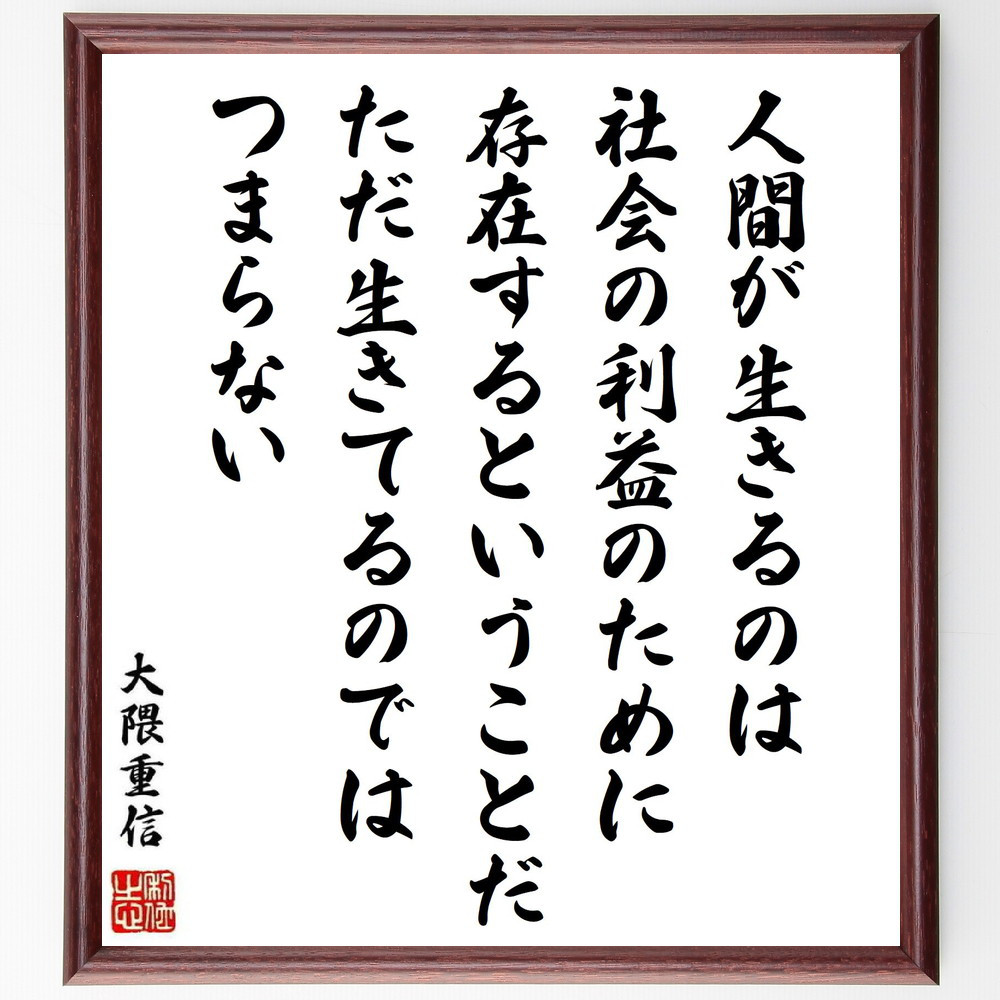 人間が生きるのは
社会の利益のために
存在するということだ
ただ生きてるのでは
つまらない
大隈重信